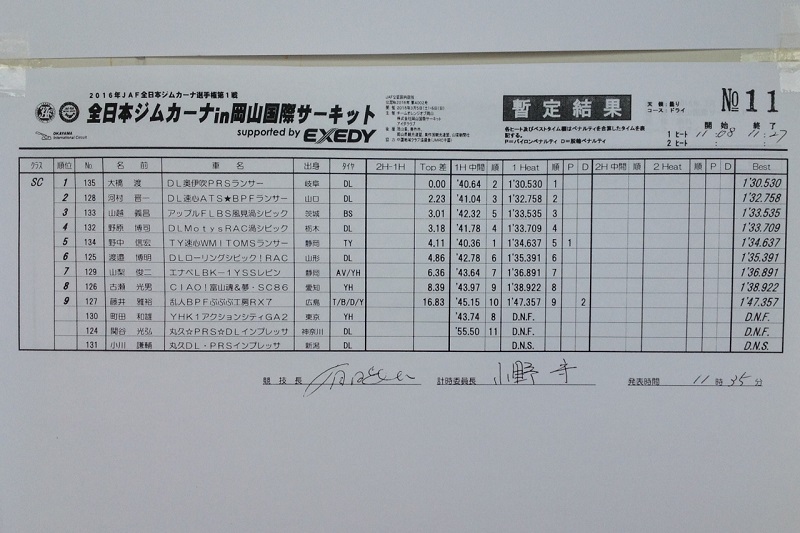 2016年JAF全日本ジムカーナ選手権第1戦
全日本ジムカーナin岡山国際サーキット
supported by EXEDY
OKAYAMA International Circuit
暫定結果
各ヒート及びベストタイム欄はペナルティを含算したタイムを表記する。
P=パイロンペナルティ D=脱輪ペナルティ
天候:曇り
コース:ドライ
No 11
開始 終了
1ヒート 11:08 11:27
2ヒート : :
クラス 順位 No 名前 車名 出身 タイヤ 2H-1H Top差 1H中間 順 1 Heat 順 P D 2H中間 順 2 Heat 順 P D Best
SC 1 135 大橋 渡 DL奥伊吹PRSランサー 岐阜 DL 0.00 '40.64 2 1'30.530 1 1'30.530
2 128 河村 晋一 DL速心ATS★BPFランサー 山口 DL 2.23 '41.04 3 1'32.758 2 1'32.758
3 133 山越 義昌 アップルFLBS風見渦シビック 茨城 BS 3.01 '42.32 5 1'33.535 3 1'33.535
4 132 野原 博司 DLMotysRAC渦シビック 栃木 DL 3.18 '41.78 4 1'33.709 4 1'33.709
5 134 野中 信宏 TY速心WMITOMSランサー 静岡 TY 4.11 '40.36 1 1'34.637 5 1 1'34.637
6 125 渡邉 博明 DLローリングシビック!RAC 山形 DL 4.86 '42.78 6 1'35.391 6 1'35.391
7 129 山梨 俊二 エナペLBK-1YSSレビン 静岡 AV/YH 6.36 '43.64 7 1'36.891 7 1'36.891
8 126 古瀬 光男 CIAO!富山魂&夢・SC86 愛知 YH 8.39 '43.97 9 1'38.922 8 1'38.922
9 127 藤井 雅裕 乱ABPFぷぷぷ工房RX7 広島 T/B/D/Y 16.83 '45.15 10 1'47.357 9 2 1'47.357
130 町田 和雄 YHK1アクションシティGA2 東京 YH '43.74 8 D.N.F. D.N.F.
124 関谷 光弘 丸久☆PRS☆DLインプレッサ 神奈川 DL '55.50 11 D.N.F. D.N.F.
131 小川 謙輔 丸久DL・PRSインプレッサ 新潟 DL D.N.S. D.N.S.
競技長 計時委員長 小野 守 発表時間 11時35分